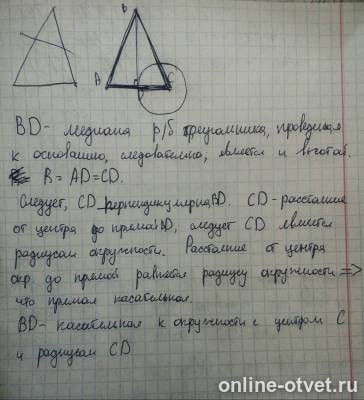 B
A
C
BD - медиана р/б треугольника, проведённая
к основанию, следовательно, является и высотой.
R = AD = CD.
Следует, CD перпендикулярна BD. CD - расстояние
от центра до прямой BD, следует CD является
радиусом окружности. Расстояние от центра
окр. до прямой равняется радиусу окружности =>
что прямая касательная.
BD - касательная к окружности с центром C
и радиусом CD
online-otvet.ru